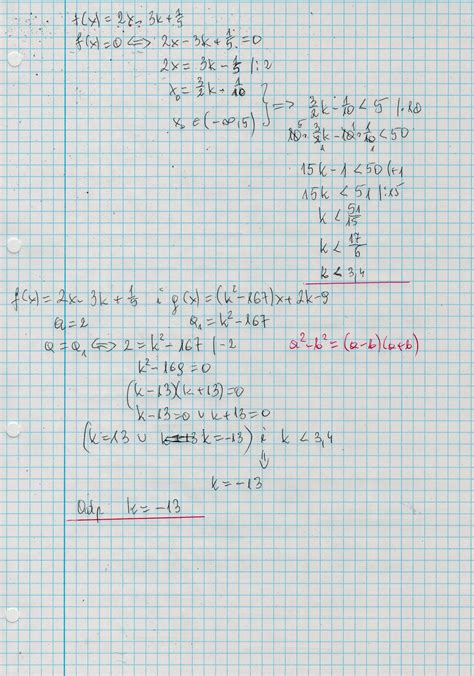 f(x) = 2x - 3k + 1/5
f(x) = 0 ⟺ 2x - 3k + 1/5 = 0
2x = 3k - 1/5 |:2
x₀ = 3/2 k - 1/10
x₀ ∈ (-∞, 5)
} ⟹ 3/2 k - 1/10 < 5 |·10
10 · 3/2 k - 10 · 1/10 < 50
15k - 1 < 50 |+1
15k < 51 |:15
k < 51/15
k < 17/5
k < 3,4
f(x) = 2x - 3k + 1/5 i g(x) = (k² - 167)x + 2k - 9
a = 2 a₁ = k² - 167
a = a₁ ⟺ 2 = k² - 167 |-2 a² - b² = (a-b)(a+b)
k² - 169 = 0
(k-13)(k+13) = 0
k-13 = 0 ∪ k+13 = 0
(k = 13 ∪ k = -13) i k < 3,4
⇓
k = -13
Odp k = -13